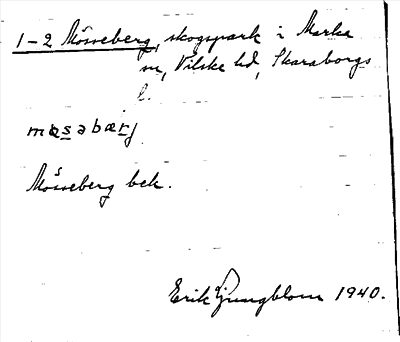 1-2 Mösseberg, skogspark i Marka
sn, Vilske hd, Skaraborgs
l.
mɵsabærj
Mösseberg bek.
Erik Ljungblom 1940.